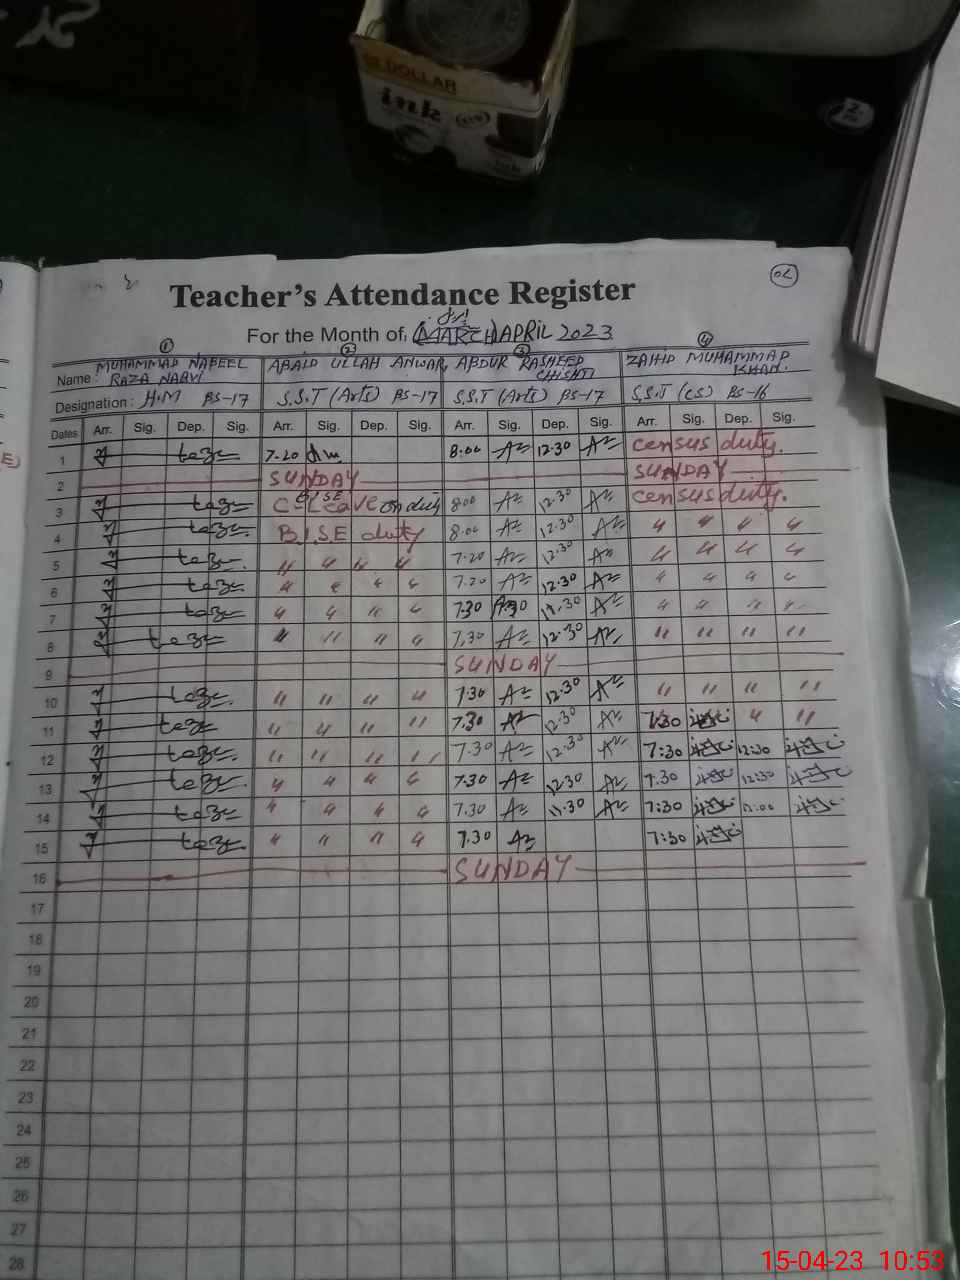 DOLLAR
ink
Teacher's Attendance Register
For the Month of. (MARCH) APRIL 2023
1 2 3 4
Name: MUHAMMAD NABEEL RAZA NAQVI ABAID ULLAH ANWAR ABDUR RASHEED CHISHTI ZAHID MUHAMMAD KHAN.
Designation: H.M BS-17 S.S.T (Arts) BS-17 S.S.T (Arts) BS-17 S.S.T (CS) BS-16
Dates Arr. Sig. Dep. Sig. Arr. Sig. Dep. Sig. Arr. Sig. Dep. Sig. Arr. Sig. Dep. Sig.
1 7.20 8.00 12.30 census duty.
2 SUNDAY SUNDAY
3 C-Leave BISE on duty 8.00 12.30 census duty.
4 B.I.SE duty 8.00 12.30 " " " "
5 " " " " 7.20 12.30 " " " "
6 " " " " 7.20 12.30 " " " "
7 " " " " 7.30 11.30 " " " "
8 " " " " 7.30 12.30 " " " "
9 SUNDAY
10 " " " " 7.30 12.30 " " " "
11 " " " " 7.30 12.30 7:30 " "
12 " " " " 7.30 12.30 7:30 12:30
13 " " " " 7.30 12.30 7.30 12:30
14 " " " " 7.30 11.30 7:30 11:00
15 " " " " 7.30 7:30
16 SUNDAY
17
18
19
20
21
22
23
24
25
26
27
28
15-04-23 10:53